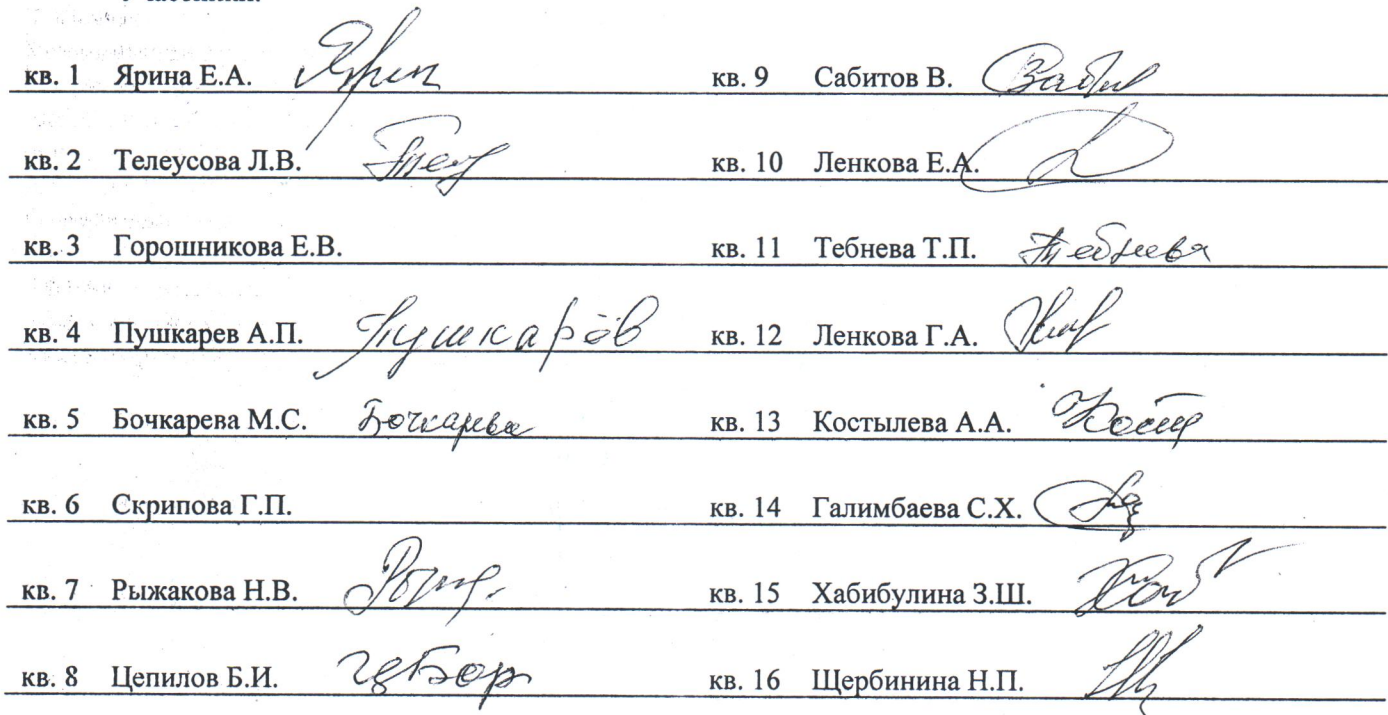 кв. 1 Ярина Е.А. Ярин
кв. 2 Телеусова Л.В. Теле
кв. 3 Горошникова Е.В.
кв. 4 Пушкарев А.П. Пушкарёв
кв. 5 Бочкарева М.С. Бочкарева
кв. 6 Скрипова Г.П.
кв. 7 Рыжакова Н.В.
кв. 8 Цепилов Б.И.
кв. 9 Сабитов В.
кв. 10 Ленкова Е.А.
кв. 11 Тебнева Т.П. Тебнева
кв. 12 Ленкова Г.А.
кв. 13 Костылева А.А.
кв. 14 Галимбаева С.Х.
кв. 15 Хабибулина З.Ш.
кв. 16 Щербинина Н.П.